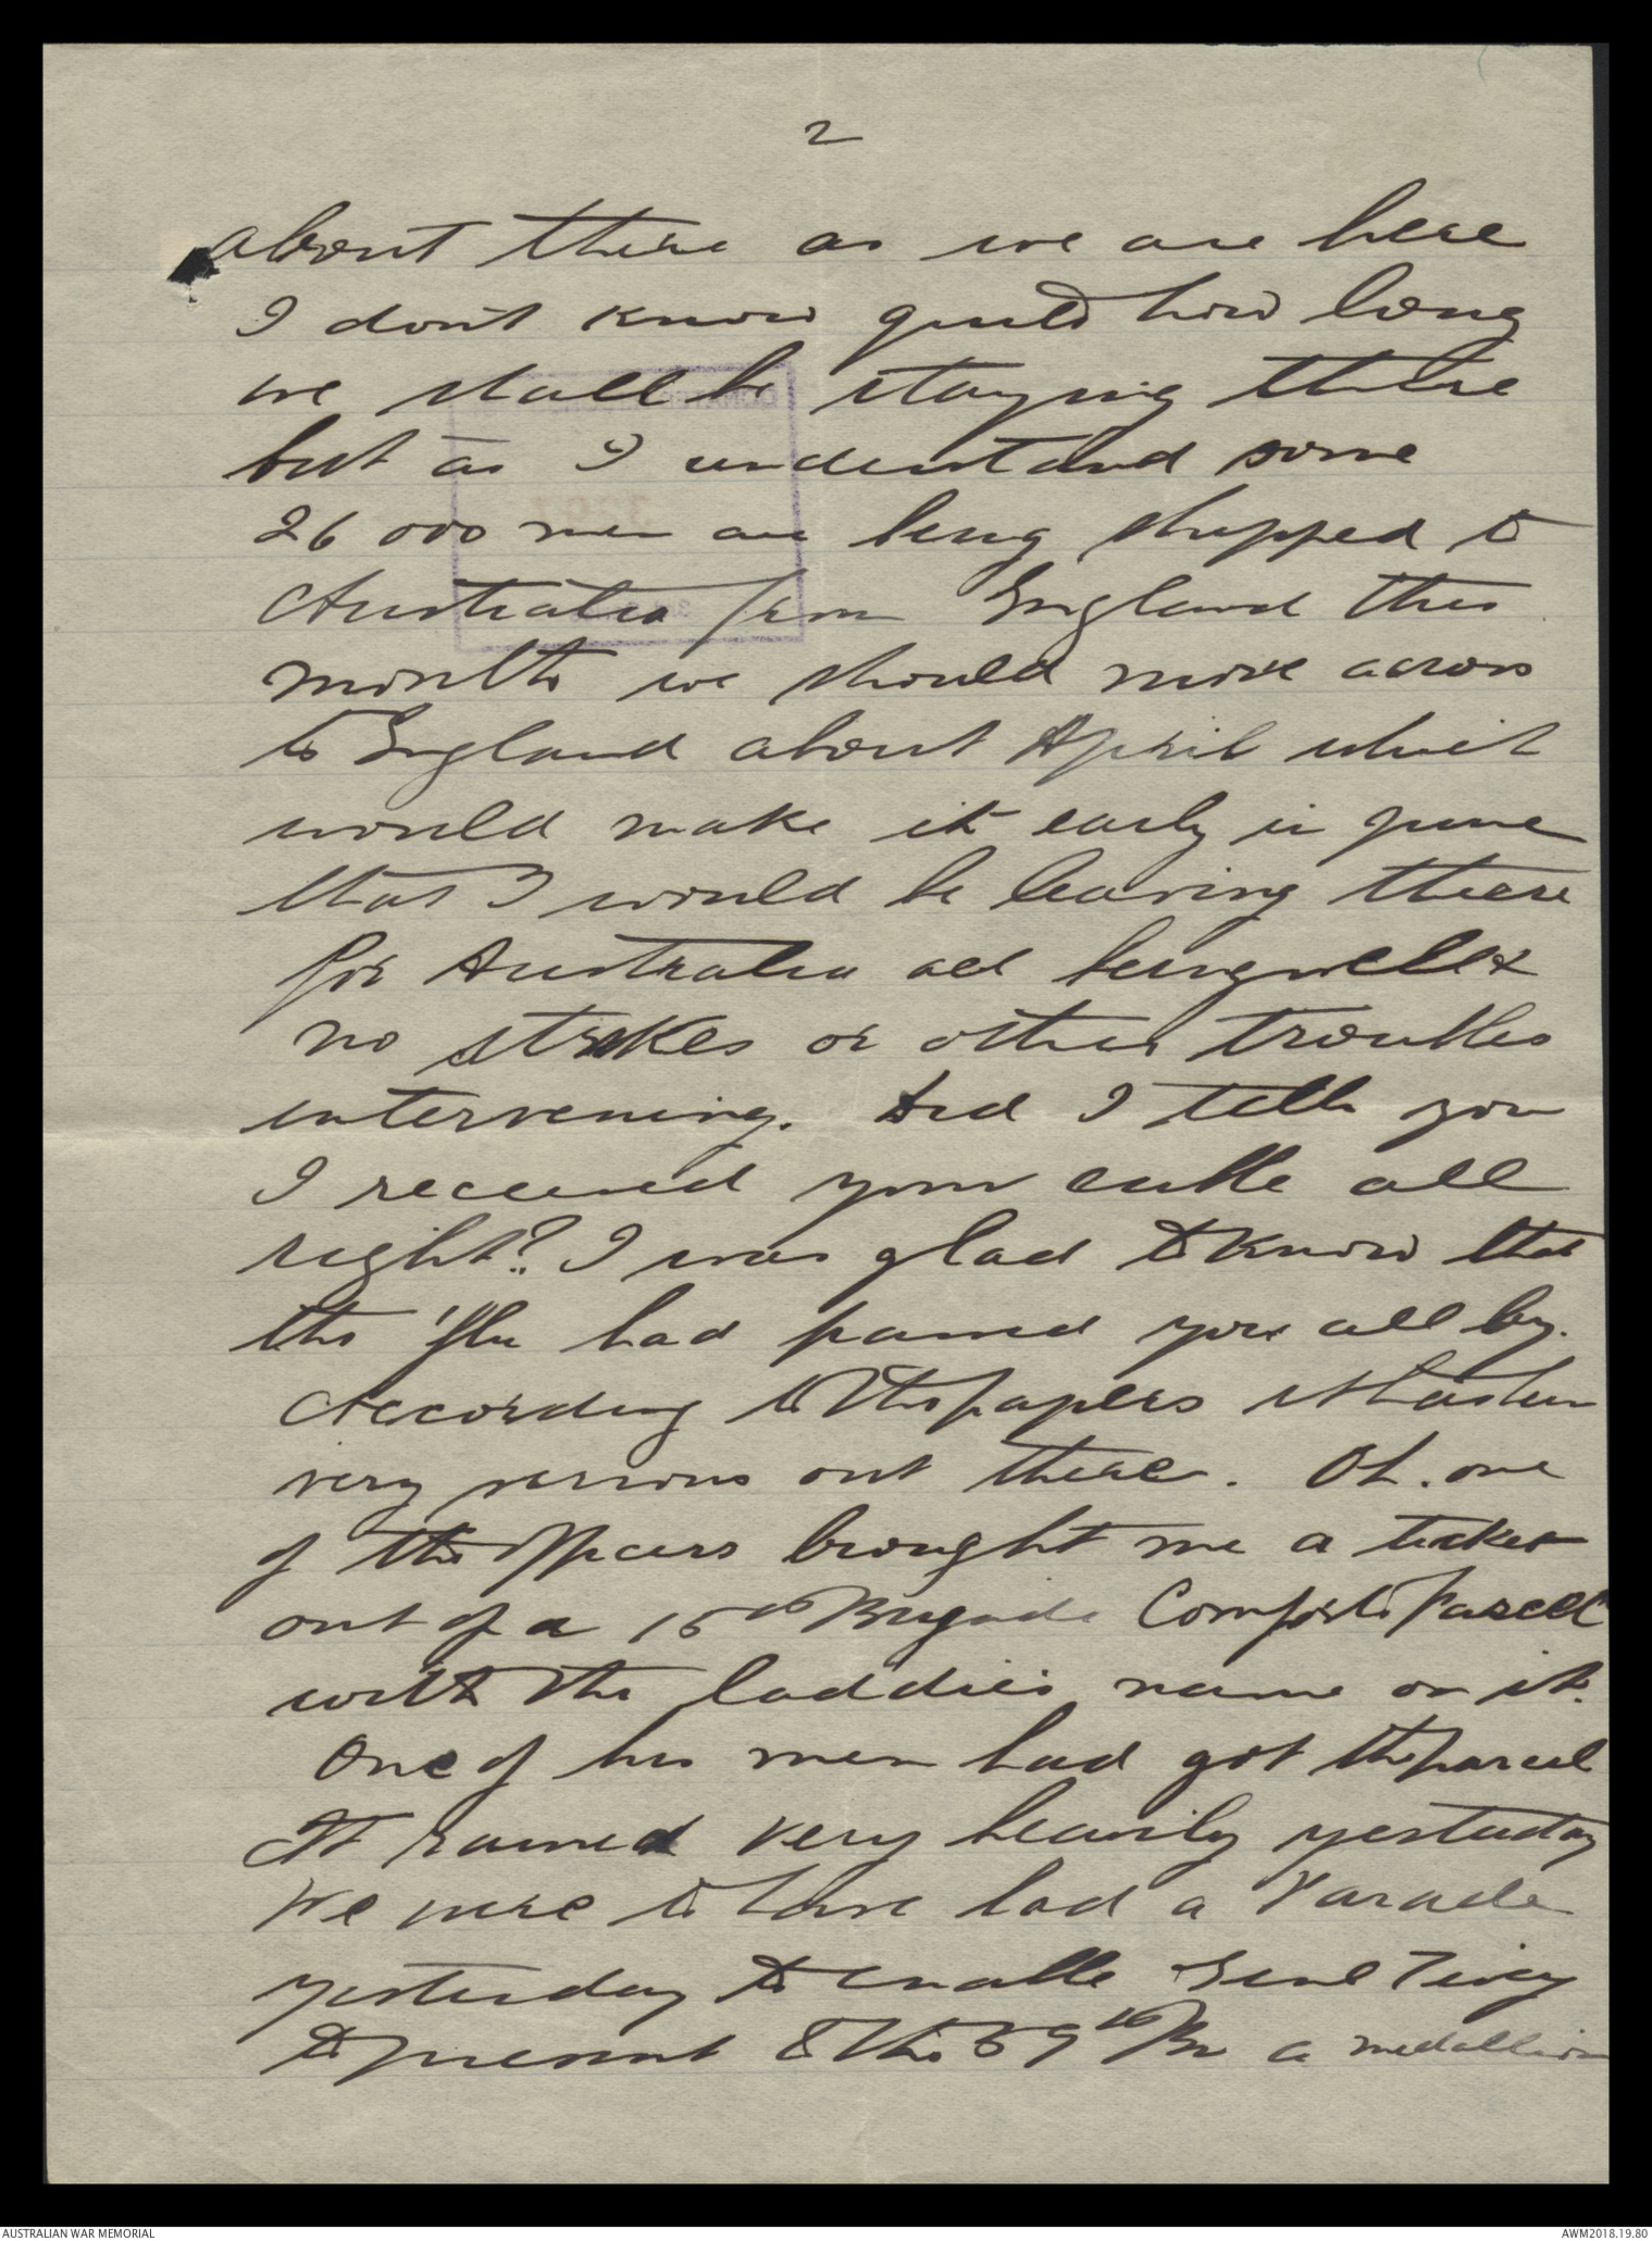 2
about there as we are here
I don't know quite how long
we shall be staying there
but as I understand some
26 000 men are being shipped to
Australia from England this
month we should move across
to England about April which
would make it early in June
that I would be leaving there
for Australia all being well &
no strikes or other troubles
intervening. Did I tell you
I received your cable all
right? I was glad to know that
the 'flu had passed you all by.
According to the papers it has been
very serious out there. Oh. one
of the officers brought me a ticket
out of a 15th Brigade Comforts Parcel
with the laddies name on it.
One of his men had got the parcel
It rained very heavily yesterday
We were to have had a Parade
yesterday to enable Genl Tivey
to present to the 59th Bn a medallion
AUSTRALIAN WAR MEMORIAL
AWM2018.19.80